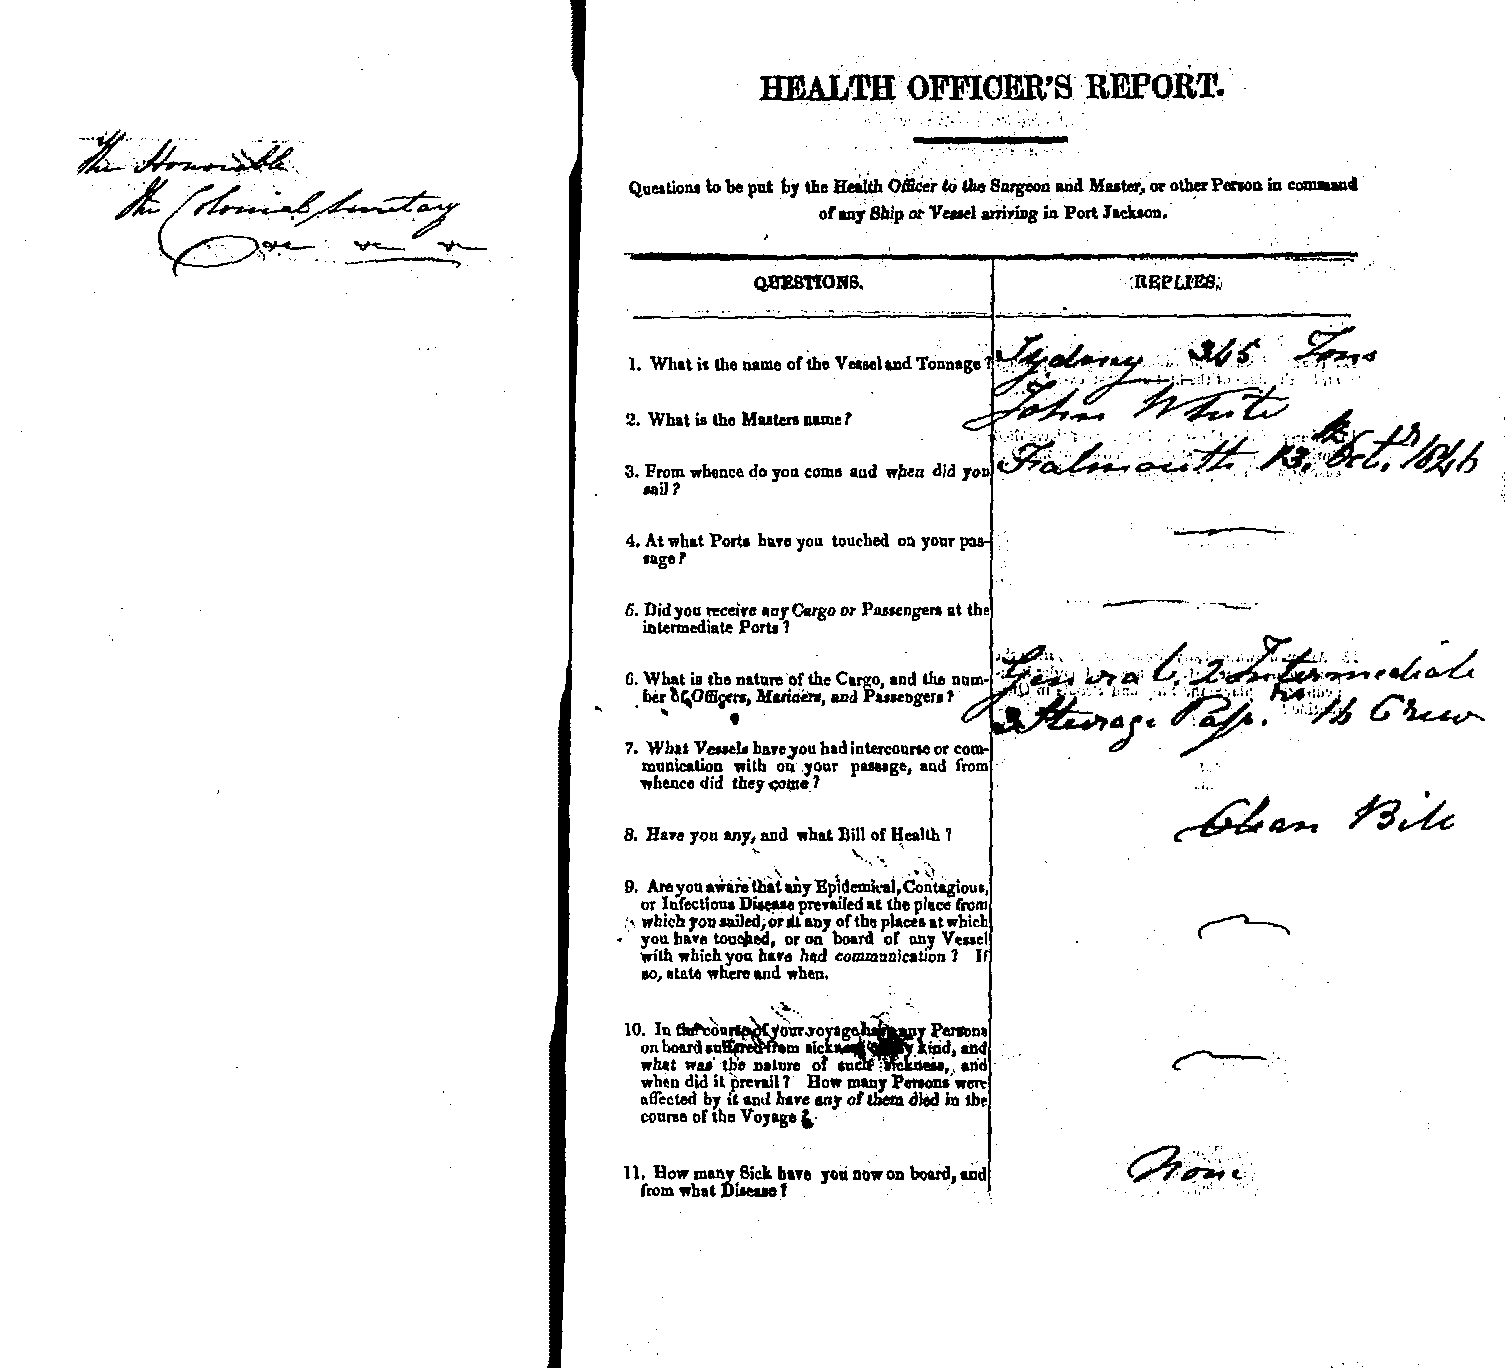 The Honorable
The Colonial Secretary
HEALTH OFFICER'S REPORT.
Questions to be put by the Health Officer to the Surgeon and Master, or other Person in command
of any Ship or Vessel arriving in Port Jackson.
QUESTIONS.
REPLIES.
1. What is the name of the Vessel and Tonnage?
Sydney 345 Tons
2. What is the Masters name?
John White
3. From whence do you come and when did you
sail?
Falmouth 13th Octr. 1846
4. At what Ports have you touched on your pas-
sage?
5. Did you receive any Cargo or Passengers at the
intermediate Ports?
6. What is the nature of the Cargo, and the num-
ber of Officers, Mariners, and Passengers?
General. 2 Intermediate
Steerage Passrs. 16 Crew
7. What Vessels have you had intercourse or com-
munication with on your passage, and from
whence did they come?
8. Have you any, and what Bill of Health?
Clean Bill
9. Are you aware that any Epidemical, Contagious,
or Infectious Disease prevailed at the place from
which you sailed, or at any of the places at which
you have touched, or on board of any Vessel
with which you have had communication? If
so, state where and when.
10. In the course of your voyage have any Persons
on board suffered from sickness of any kind, and
what was the nature of such sickness, and
when did it prevail? How many Persons were
affected by it and have any of them died in the
course of the Voyage?
11. How many Sick have you now on board, and
from what Disease?
None